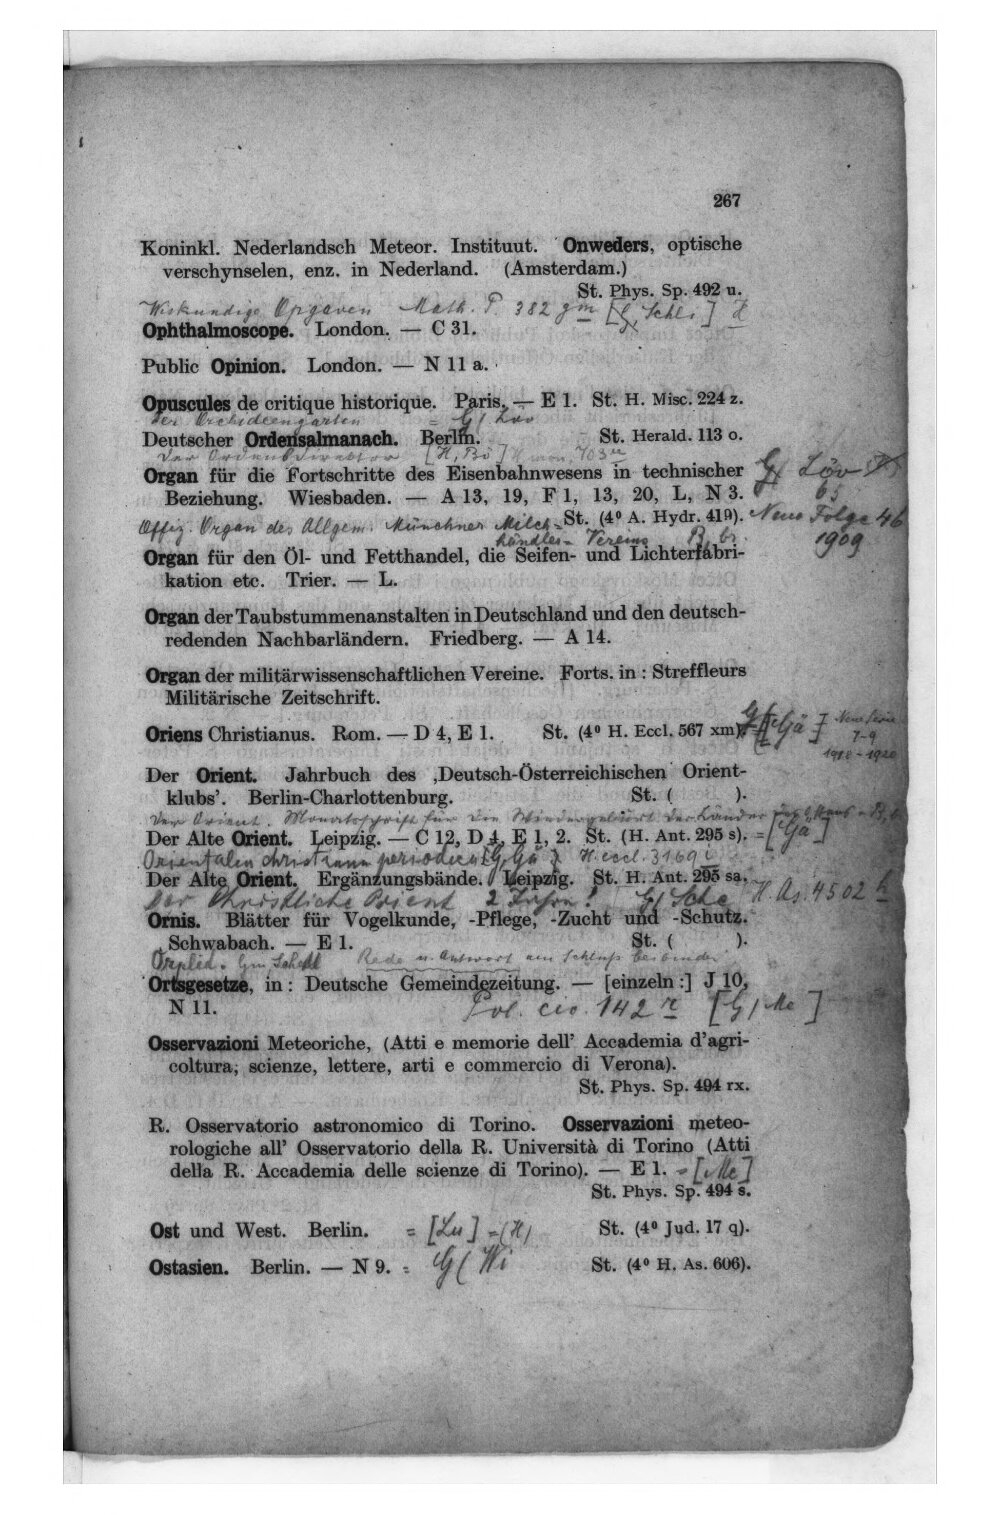 267
Koninkl. Nederlandsch Meteor. Instituut. Onweders, optische
verschynselen, enz. in Nederland. (Amsterdam.)
St. Phys. Sp. 492 u.
Wiskundige Opgaven Math. P. 382 gm [G, Schli]
Ophthalmoscope. London. — C 31.
Public Opinion. London. — N 11 a.
Opuscules de critique historique. Paris. — E 1. St. H. Misc. 224 z.
Der Orchideengarten = G( Löv
Deutscher Ordensalmanach. Berlin. St. Herald. 113 o.
Der Ordensdirektor [H, Bö] 703
Organ für die Fortschritte des Eisenbahnwesens in technischer G( Löv
Beziehung. Wiesbaden. — A 13, 19, F 1, 13, 20, L, N 3. 65
St. (4⁰ A. Hydr. 419). Neue Folge 46
Offiz. Organ des Allgem. Münchner Milch-
händler-Vereins B, br. 1909
Organ für den Öl- und Fetthandel, die Seifen- und Lichterfabri-
kation etc. Trier. — L.
Organ der Taubstummenanstalten in Deutschland und den deutsch-
redenden Nachbarländern. Friedberg. — A 14.
Organ der militärwissenschaftlichen Vereine. Forts. in : Streffleurs
Militärische Zeitschrift.
Oriens Christianus. Rom. — D 4, E 1. St. (4⁰ H. Eccl. 567 xm). [Gä] Neue Serie
7-9
1918-1920
Der Orient. Jahrbuch des ‚Deutsch-Österreichischen Orient-
klubs'. Berlin-Charlottenburg. St. ( ).
Der Orient. Monatsschrift für die Wiedergeburt der Länder des Ostens
Der Alte Orient. Leipzig. — C 12, D 4, E 1, 2. St. (H. Ant. 295 s). = [Gä]
Orientalia christiana periodica [G, Gä] H. eccl. 3169 i
Der Alte Orient. Ergänzungsbände. Leipzig. St. H. Ant. 295 sa.
Der Christliche Orient G( Sche H. As. 4502 h
Ornis. Blätter für Vogelkunde, -Pflege, -Zucht und -Schutz.
Schwabach. — E 1. St. ( ).
Orplid. Rede u. Antwort am Schluß beibinden
Ortsgesetze, in : Deutsche Gemeindezeitung. — [einzeln :] J 10,
N 11.
Pol. civ. 142 r [G, Me]
Osservazioni Meteoriche, (Atti e memorie dell' Accademia d'agri-
coltura, scienze, lettere, arti e commercio di Verona).
St. Phys. Sp. 494 rx.
R. Osservatorio astronomico di Torino. Osservazioni meteo-
rologiche all' Osservatorio della R. Università di Torino (Atti
della R. Accademia delle scienze di Torino). — E 1. = [Me]
St. Phys. Sp. 494 s.
Ost und West. Berlin. = [Lu] = (H) St. (4⁰ Jud. 17 q).
Ostasien. Berlin. — N 9. = G( Wi St. (4⁰ H. As. 606).